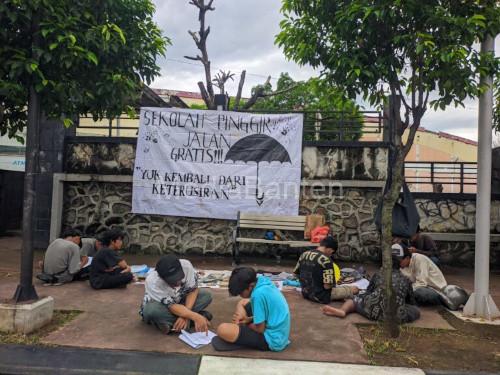 SEKOLAH PINGGIR
JALAN
GRATIS!!!
"YUK KEMBALI DARI
KETERUSIRAN"
Banten